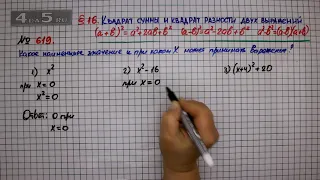 4ГДЗ5.RU
§ 16. Квадрат суммы и квадрат разности двух выражений
(a+b)² = a²+2ab+b² (a-b)² = a²-2ab+b² a²-b²=(a-b)(a+b)
№ 619.
Какое наименьшее значение и при каком X может принимать выражение?
1) x² 2) x²-16 3) (x+4)²+20
при x=0 при x=0
x²=0
Ответ: 0 при
x=0